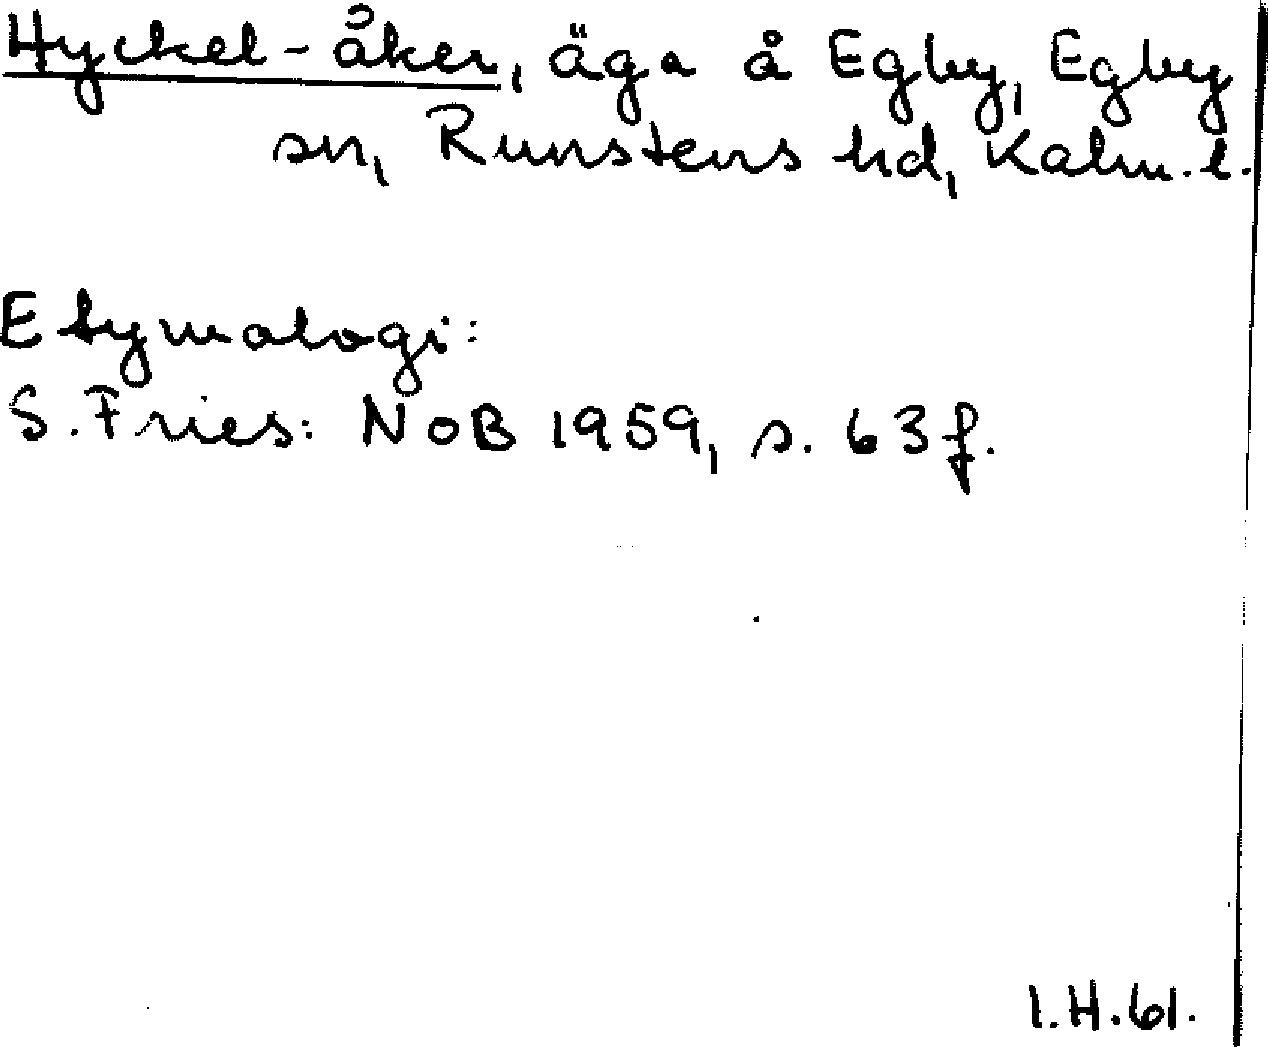 Hyckel-åker, äga å Egby, Egby
sn, Runstens hd, Kalm. l.
Etymologi:
S. Fries: NoB 1959, s. 63 f.
I.H. 61.